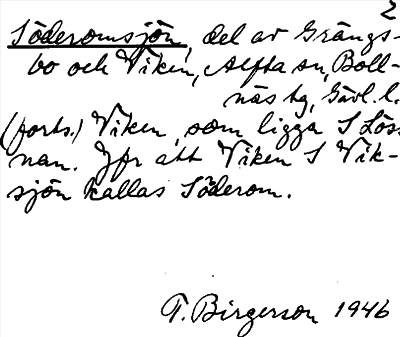 2
Söderomsjön, del av Grängs-
bo och Viken, Alfta sn, Boll-
näs tg, Gävl. l.
(forts.) Viken, som ligga S Lös-
nan. Jfr att Viken S Vik-
sjön kallas Söderom.
T. Birgerson 1946